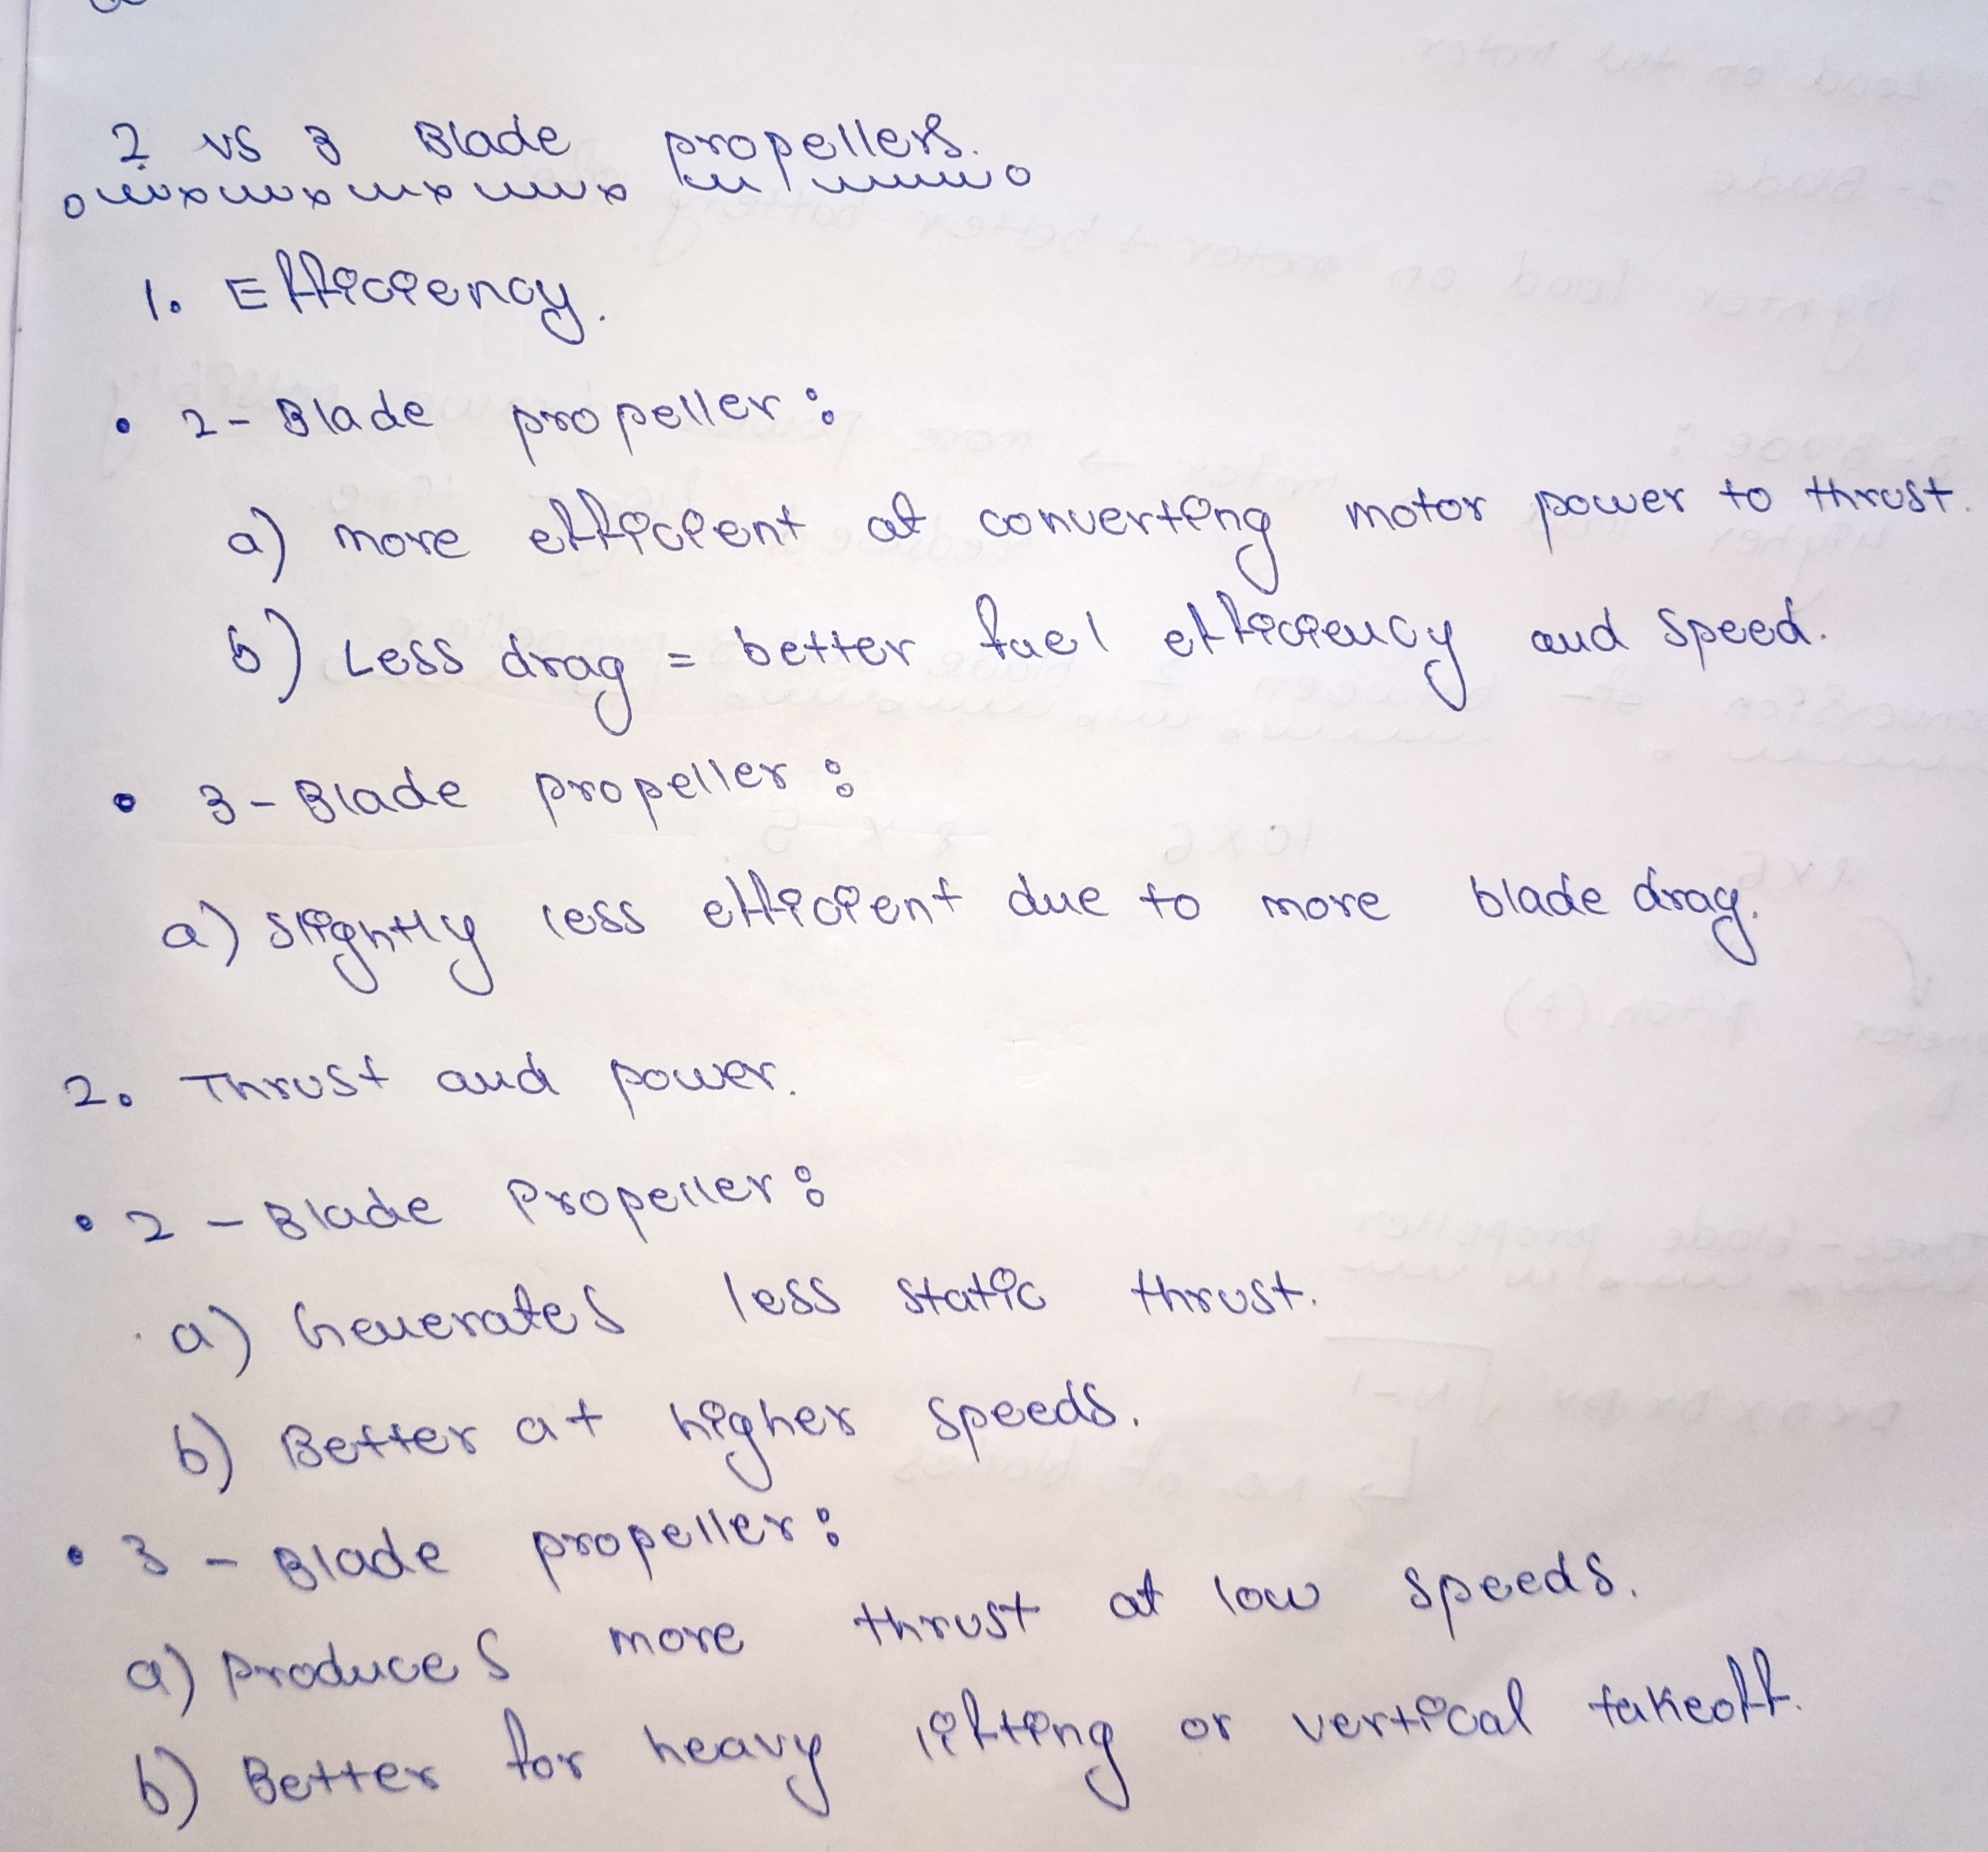 2 vs 3 Blade propellers.
1. Efficiency.
• 2-Blade propeller:
a) more efficient at converting motor power to thrust.
b) Less drag = better fuel efficiency and speed.
• 3-Blade propeller:
a) slightly less efficient due to more blade drag.
2. Thrust and power.
• 2-Blade Propeller:
a) Generates less static thrust.
b) Better at higher speeds.
• 3-Blade propeller:
a) produces more thrust at low speeds.
b) Better for heavy lifting or vertical takeoff.